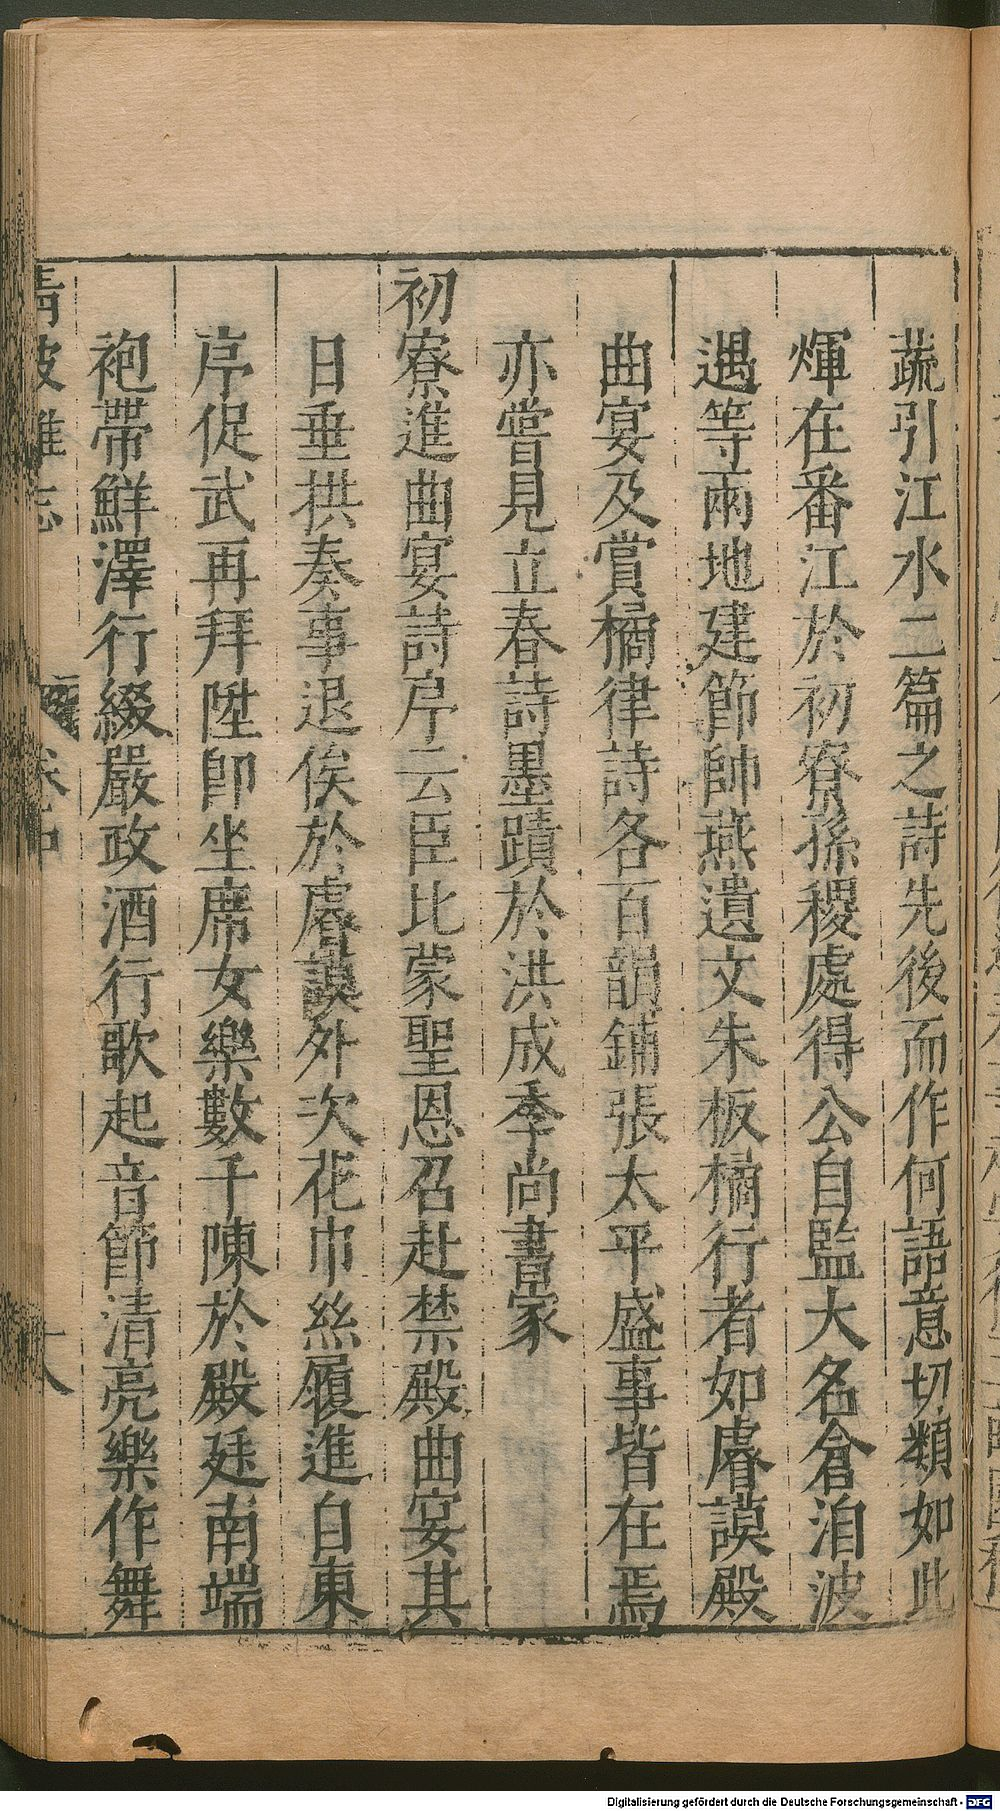 蔬引江水二篇之詩先後而作何語意切類如此
煇在番江於初寮孫稷處得公自監大名倉洎波
遇等兩地建節帥燕遺文朱板橘行者如睿謨殿
曲宴及賞橘律詩各百韻鋪張太平盛事皆在焉
亦嘗見立春詩墨蹟於洪成季尚書家
初寮進曲宴詩序云臣比蒙聖恩召赴禁殿曲宴其
日垂拱奏事退俟於睿謨外次花巾絲履進自東
序促武再拜陞即坐席女樂數千陳於殿廷南端
袍帶鮮澤行綴嚴政酒行歌起音節清亮樂作舞
清波雜志 卷中 大
Digitalisierung gefördert durch die Deutsche Forschungsgemeinschaft - DFG